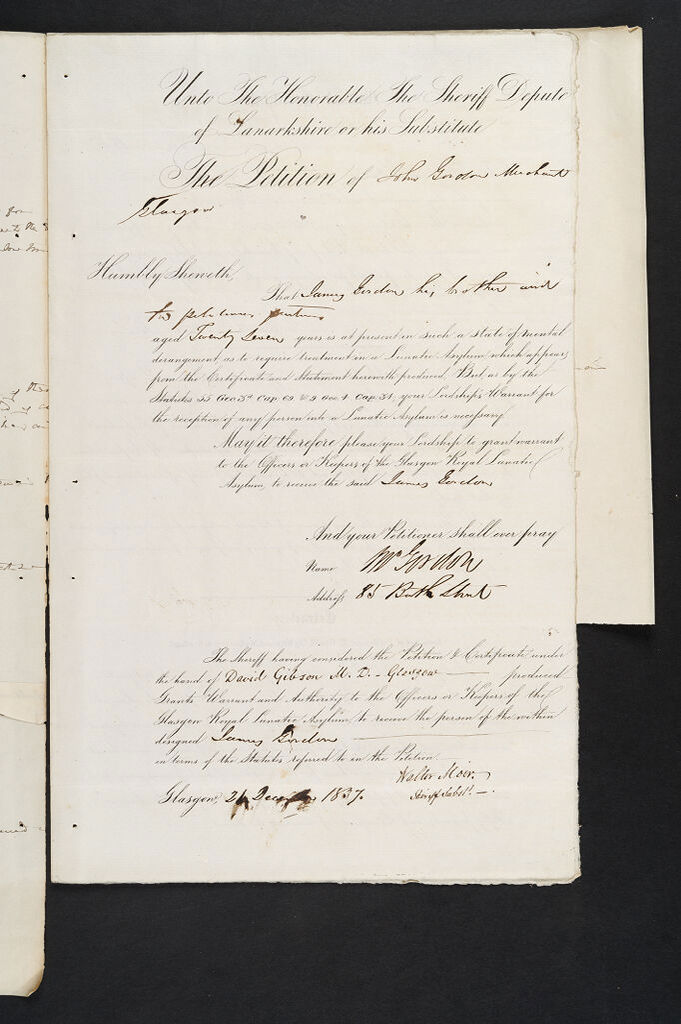 Unto The Honorable The Sheriff Depute
of Lanarkshire or his Substitute
The Petition of John Gordon Merchant
Glasgow
Humbly Sheweth,
That James Gordon his brother and
aged Twenty Seven years is at present in such a state of mental
derangement, as to require treatment in a Lunatic Asylum, which appears
from the Certificate and Statement herewith produced. But as by the
Statutes 55 Geo 3d Cap 69 & 9 Geo 4 Cap 34, your Lordship's Warrant for
the reception of any person into a Lunatic Asylum is necessary
May it therefore please your Lordship to grant warrant
to the Officers or Keepers of the Glasgow Royal Lunatic
Asylum, to receive the said James Gordon
And your Petitioner shall ever pray
Name Gordon
Address 85 Bath Street
The Sheriff having considered the Petition & Certificate under
the hand of David Gibson M. D. - Glasgow produced
Grants Warrant and Authority to the Officers or Keepers of the
Glasgow Royal Lunatic Asylum to receive the person of the within
designed James Gordon
in terms of the Statutes referred to in the Petition.
Walter Moir,
Glasgow, 1837. Sheriff Subst.